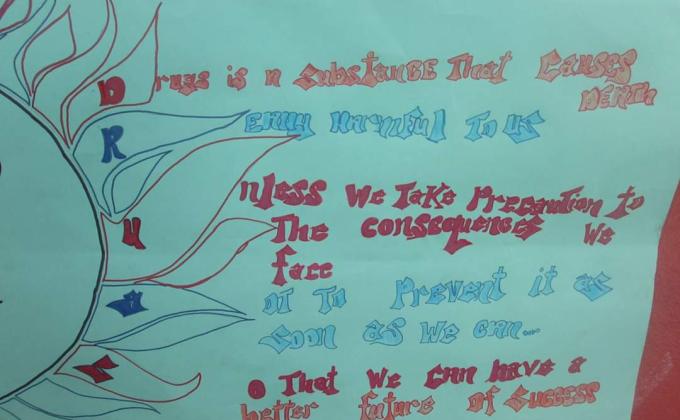 Drugs is a substance That Causes
Death
REally Harmful To us
Unless We Take Precaution to
The consequences We
face
Got To Prevent it as
Soon as We can...
So That We Can have a
better future of Success